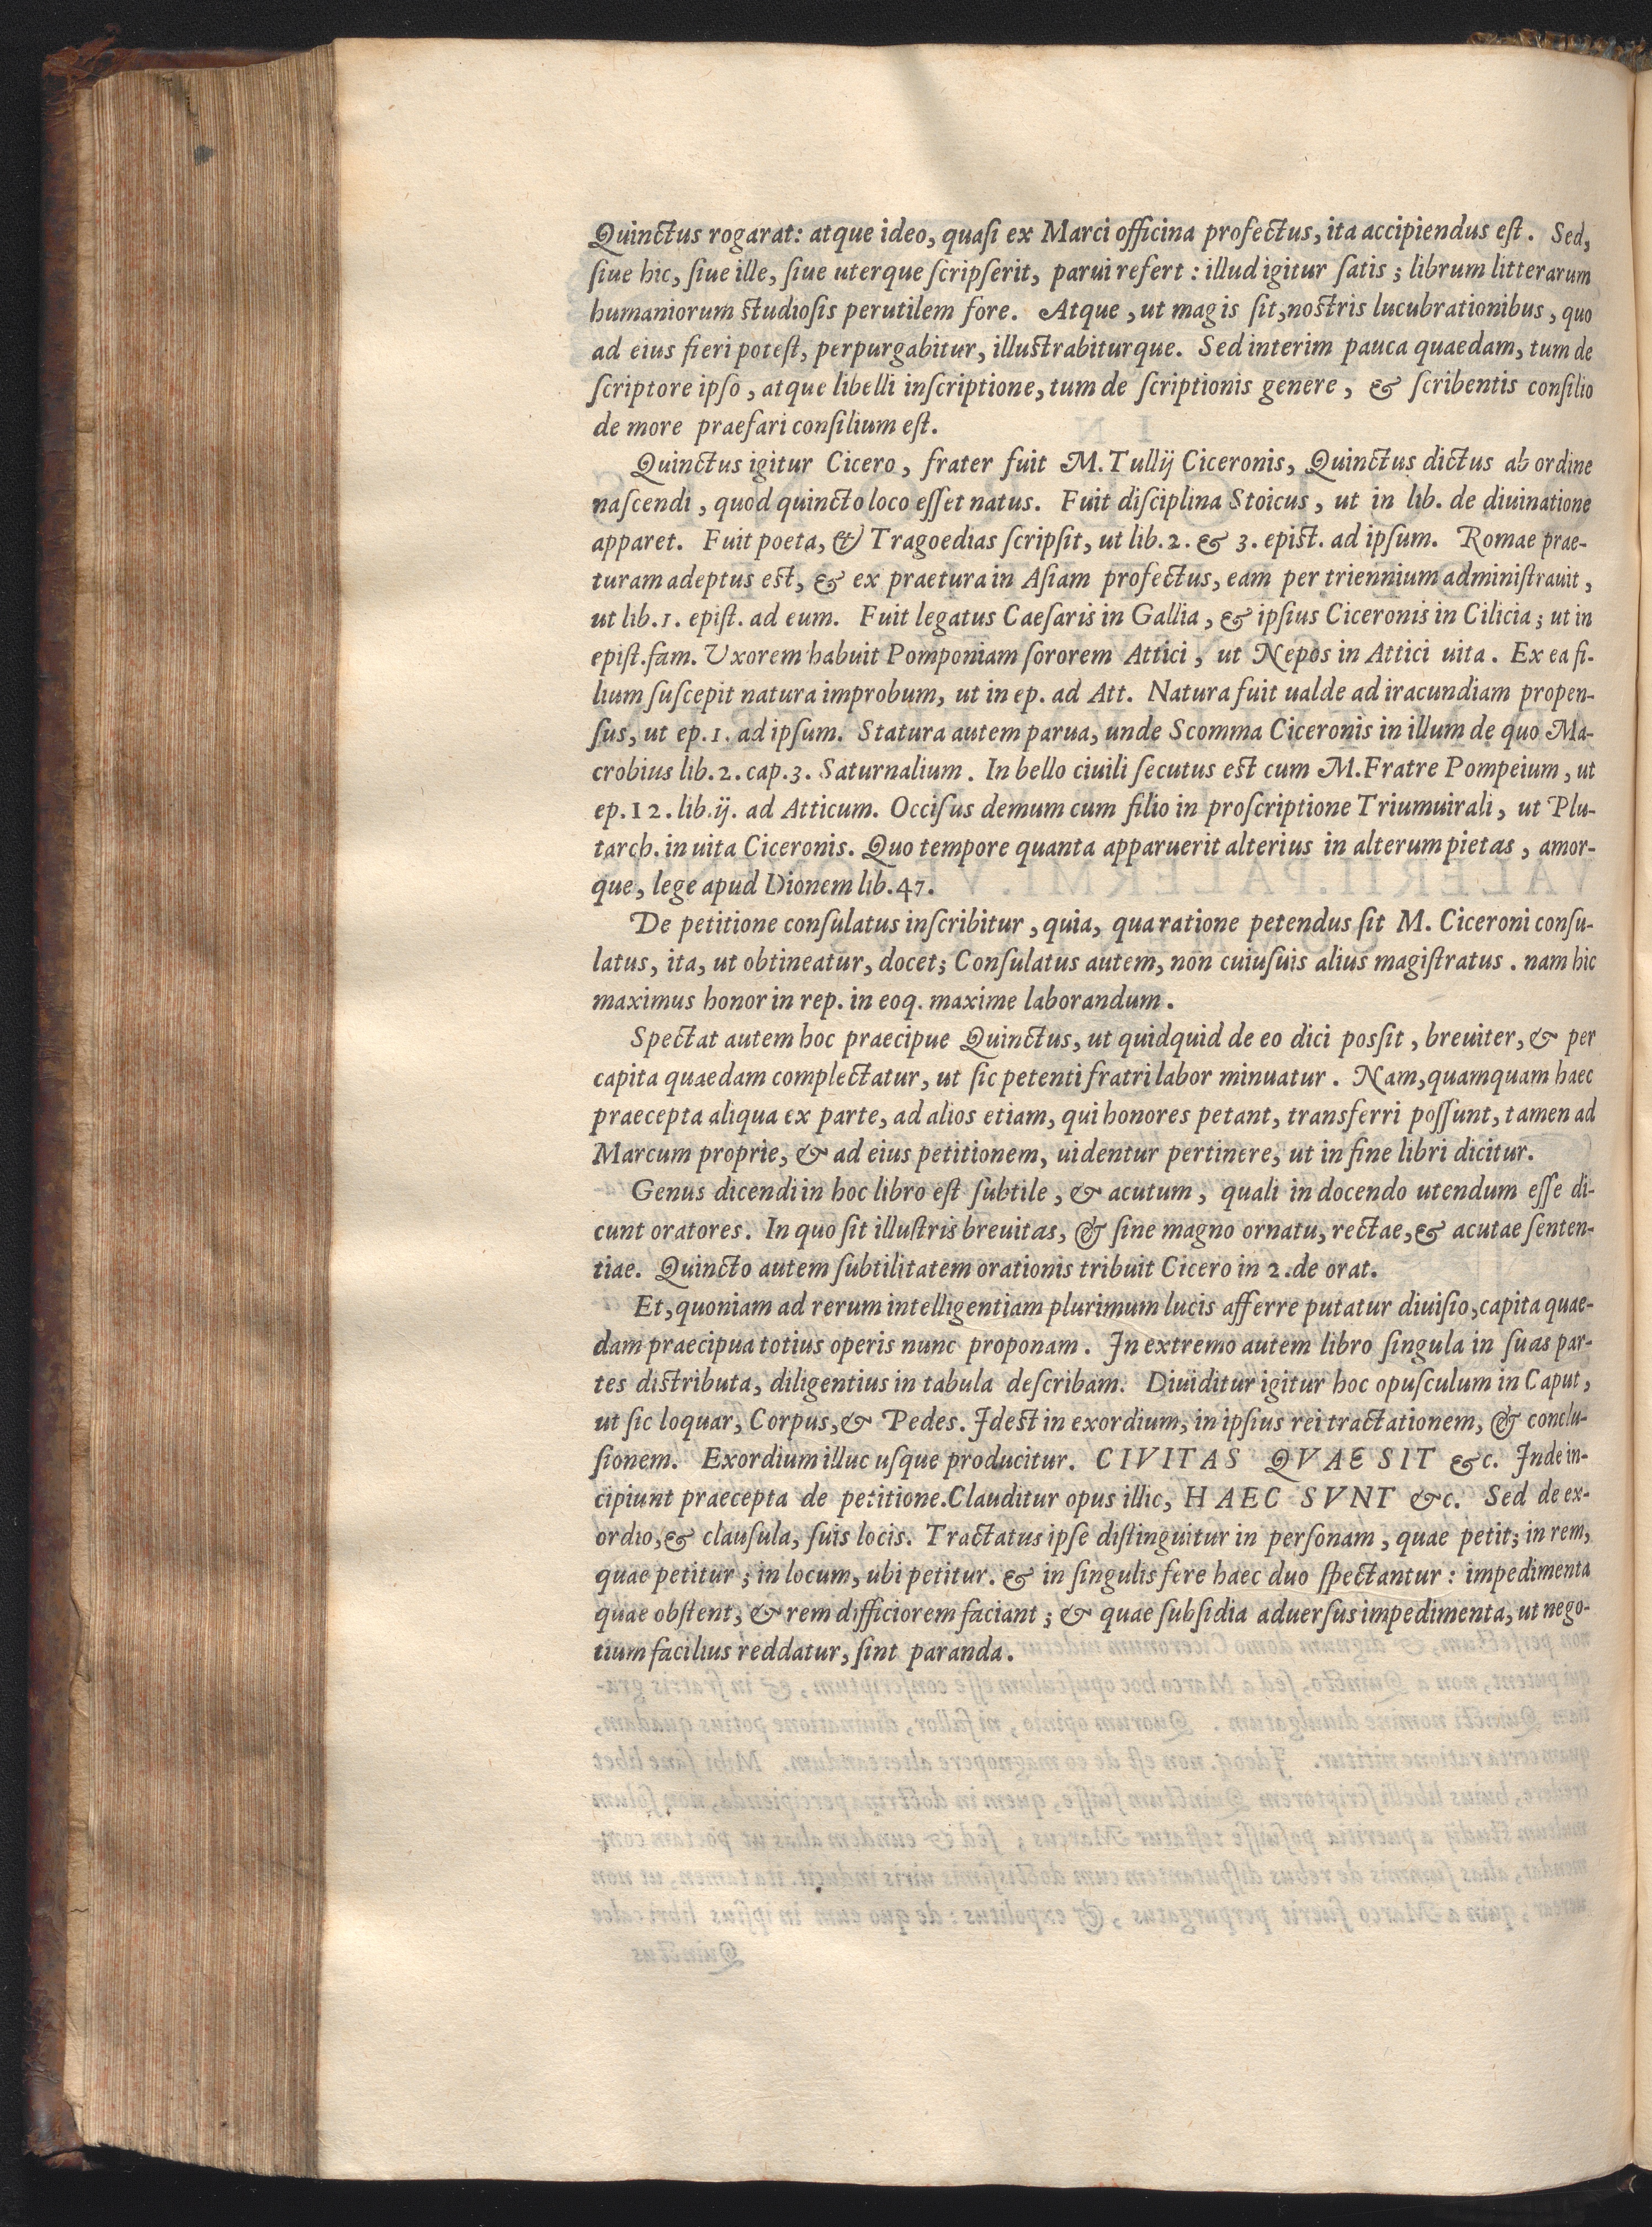 Quinctus rogarat: atque ideo, quaſi ex Marci officina profectus, ita accipiendus eſt. Sed,
ſiue hic, ſiue ille, ſiue uterque ſcripſerit, parui refert: illud igitur ſatis; librum litterarum
humaniorum ſtudioſis perutilem fore. Atque, ut magis ſit, noſtris lucubrationibus, quo
ad eius fieri poteſt, perpurgabitur, illuſtrabiturque. Sed interim pauca quaedam, tum de
ſcriptore ipſo, atque libelli inſcriptione, tum de ſcriptionis genere, & ſcribentis conſilio
de more praefari conſilium eſt.
Quinctus igitur Cicero, frater fuit M. Tullij Ciceronis, Quinctus dictus ab ordine
naſcendi, quod quincto loco eſſet natus. Fuit diſciplina Stoicus, ut in lib. de diuinatione
apparet. Fuit poeta, & Tragoedias ſcripſit, ut lib. 2. & 3. epiſt. ad ipſum. Romae prae-
turam adeptus eſt, & ex praetura in Aſiam profectus, eam per triennium adminiſtrauit,
ut lib. 1. epiſt. ad eum. Fuit legatus Caeſaris in Gallia, & ipſius Ciceronis in Cilicia; ut in
epiſt. fam. Vxorem habuit Pomponiam ſororem Attici, ut Nepos in Attici uita. Ex ea fi-
lium ſuſcepit natura improbum, ut in ep. ad Att. Natura fuit ualde ad iracundiam propen-
ſus, ut ep. 1. ad ipſum. Statura autem parua, unde Scomma Ciceronis in illum de quo Ma-
crobius lib. 2. cap. 3. Saturnalium. In bello ciuili ſecutus eſt cum M. Fratre Pompeium, ut
ep. 12. lib. ij. ad Atticum. Occiſus demum cum filio in proſcriptione Triumuirali, ut Plu-
tarch. in uita Ciceronis. Quo tempore quanta apparuerit alterius in alterum pietas, amor-
que, lege apud Dionem lib. 47.
De petitione conſulatus inſcribitur, quia, qua ratione petendus ſit M. Ciceroni conſu-
latus, ita, ut obtineatur, docet; Conſulatus autem, non cuiuſuis alius magiſtratus. nam hic
maximus honor in rep. in eoq. maxime laborandum.
Spectat autem hoc praecipue Quinctus, ut quidquid de eo dici poſſit, breuiter, & per
capita quaedam complectatur, ut ſic petenti fratri labor minuatur. Nam, quamquam haec
praecepta aliqua ex parte, ad alios etiam, qui honores petant, transferri poſſunt, tamen ad
Marcum proprie, & ad eius petitionem, uidentur pertinere, ut in fine libri dicitur.
Genus dicendi in hoc libro eſt ſubtile, & acutum, quali in docendo utendum eſſe di-
cunt oratores. In quo ſit illuſtris breuitas, & ſine magno ornatu, rectae, & acutae ſenten-
tiae. Quincto autem ſubtilitatem orationis tribuit Cicero in 2. de orat.
Et, quoniam ad rerum intelligentiam plurimum lucis afferre putatur diuiſio, capita quae-
dam praecipua totius operis nunc proponam. In extremo autem libro ſingula in ſuas par-
tes diſtributa, diligentius in tabula deſcribam. Diuiditur igitur hoc opuſculum in Caput,
ut ſic loquar, Corpus, & Pedes. Ideſt in exordium, in ipſius rei tractationem, & conclu-
ſionem. Exordium illuc uſque producitur. CIVITAS QVAE SIT &c. Inde in-
cipiunt praecepta de petitione. Clauditur opus illic, HAEC SVNT &c. Sed de ex-
ordio, & clauſula, ſuis locis. Tractatus ipſe diſtinguitur in perſonam, quae petit; in rem,
quae petitur; in locum, ubi petitur. & in ſingulis fere haec duo ſpectantur: impedimenta
quae obſtent, & rem difficiorem faciant; & quae ſubſidia aduerſus impedimenta, ut nego-
tium facilius reddatur, ſint paranda.